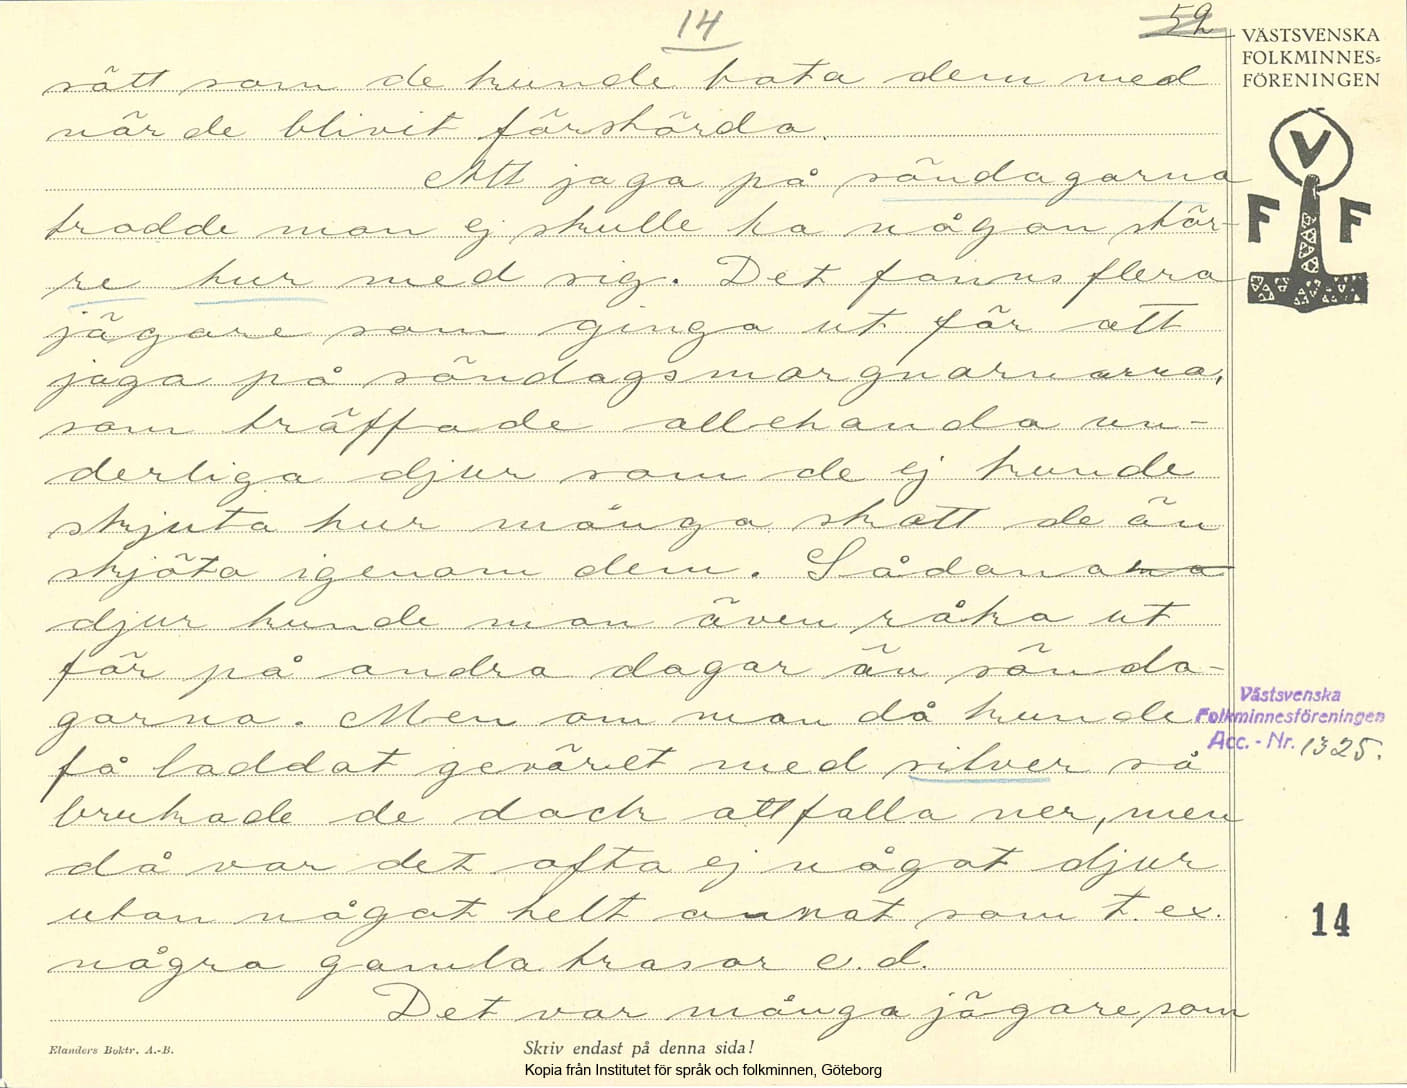 14
52
VÄSTSVENSKA
FOLKMINNES=
FÖRENINGEN
V
F F
sätt som de kunde bota dem med
när de blivit förskörda.
Att jaga på söndagarna
trodde man ej skulle ha någon stör-
re tur med sig. Det fanns flera
jägare som gingo ut för att
jaga på söndagsmorgnarnarna,
som träffade allehanda un-
derliga djur som de ej kunde
skjuta hur många skott de än
skjöto igenom dem. Sådanana
djur kunde man även råka ut
för på andra dagar än sönda-
garna. Men om man då kunde
få laddat geväret med silver så
brukade de dock att falla ner, men
då var det ofta ej något djur
utan något helt annat som t. ex.
några gamla trasor o. d.
Det var många jägare, som
Västsvenska
Folkminnesföreningen
Acc. - Nr. 1325.
14
Elanders Boktr. A.-B.
Skriv endast på denna sida!
Kopia från Institutet för språk och folkminnen, Göteborg